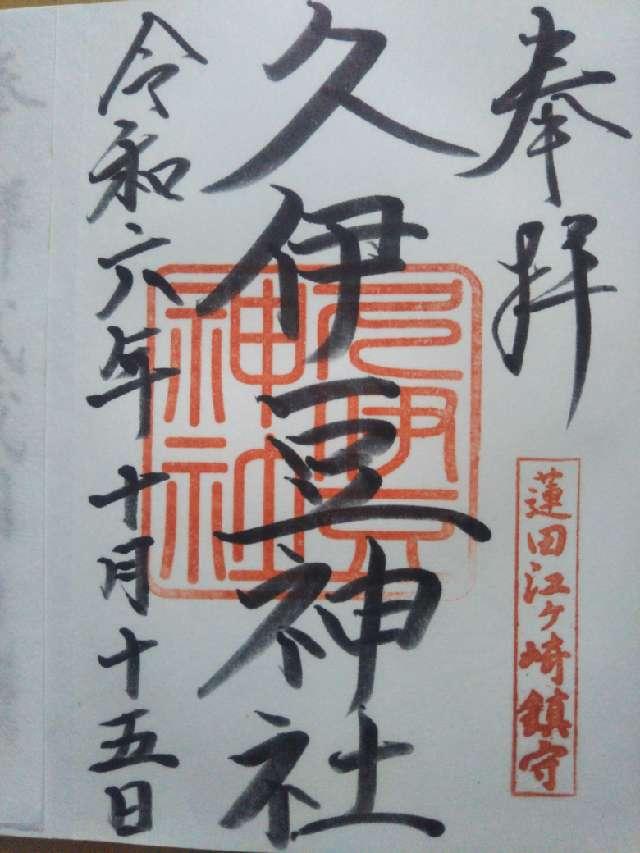 奉拝
蓮田江ヶ崎鎮守
久伊豆神社
久伊豆神社
令和六年十月十五日